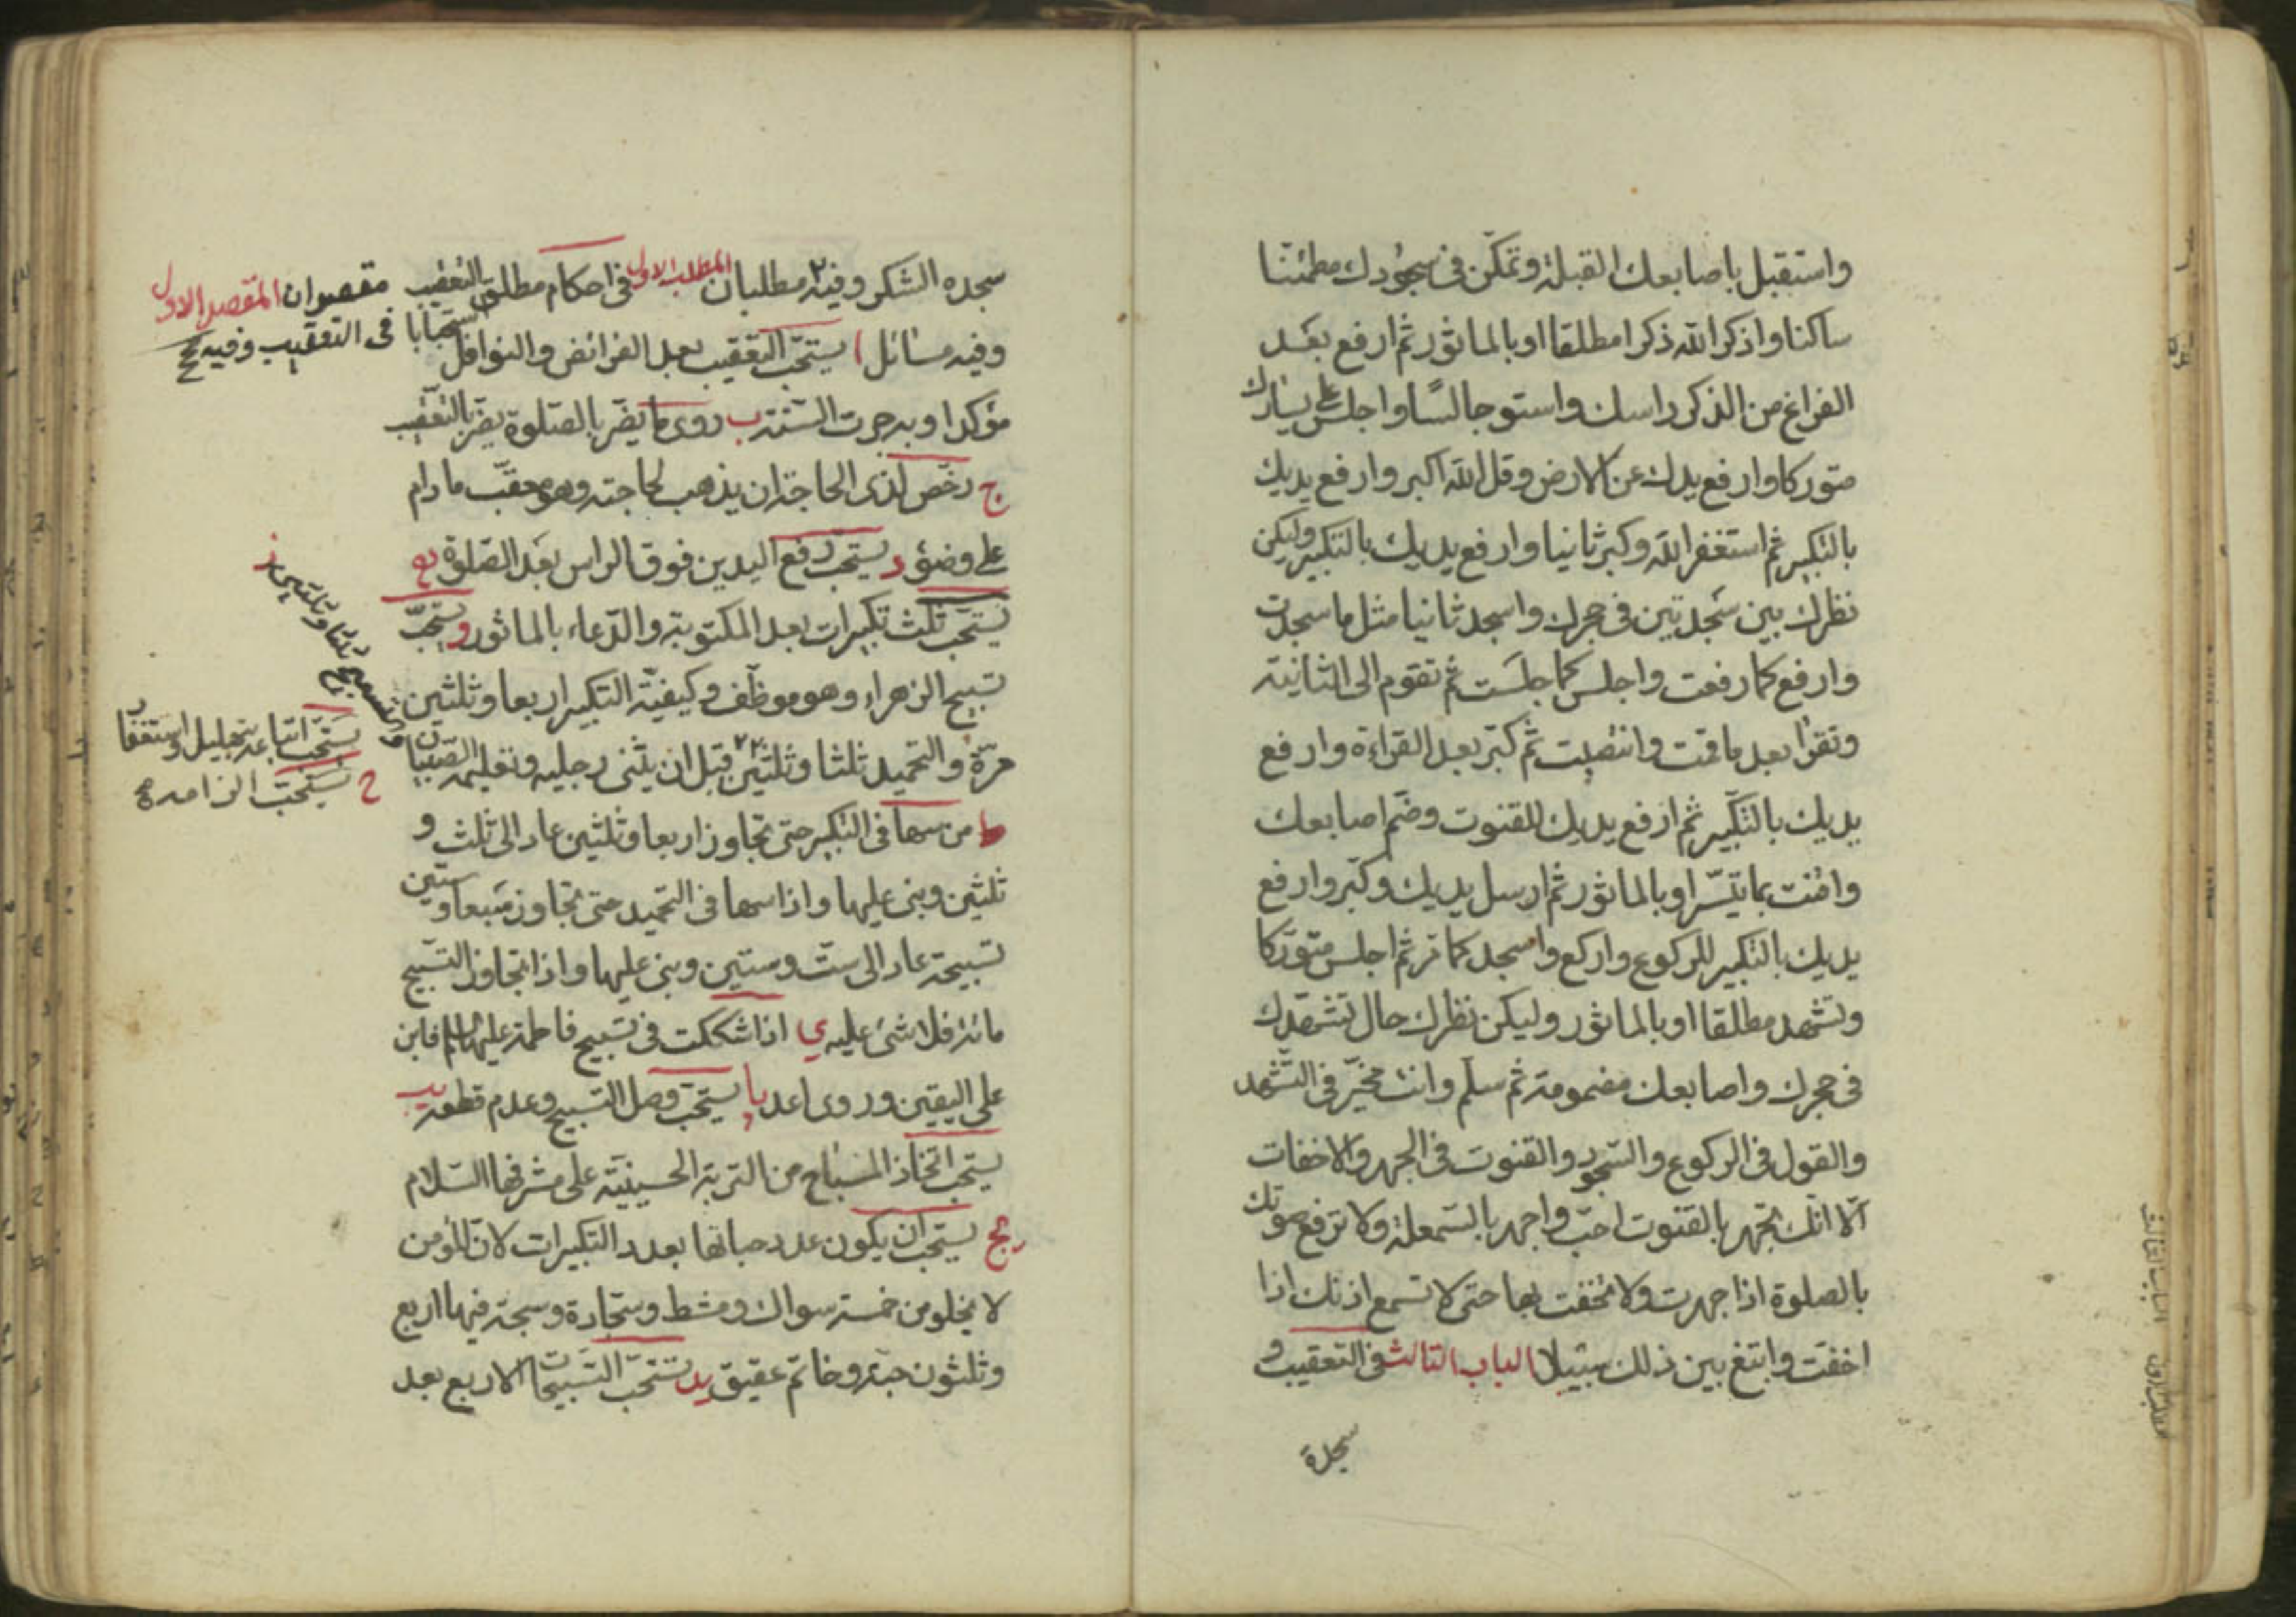 واستقبل باصابعك القبلة وتمكن فى سجودك مطمئنا
ساكنا واذكر الله ذكرا مطلقا او بالماثور ثم ارفع بعد
الفراغ من الذكر راسك واستو جالسا واجلس على يسارك
متوركا وارفع يدك عن الارض وقل الله اكبر وارفع يديك
بالتكبير ثم استغفر الله وكبر ثانيا وارفع يديك بالتكبير وليكن
نظرك بين سجدتين فى حجرك واسجد ثانيا مثل ما سجدت
وارفع كما رفعت واجلس كما جلست ثم تقوم الى الثانية
وتقرا بعد ما قمت وانتصبت ثم كبر بعد القراءة وارفع
يديك بالتكبير ثم ارفع يديك للقنوت وضم اصابعك
واقنت بما تيسر او بالماثور ثم ارسل يديك وكبر وارفع
يديك بالتكبير للركوع واركع واسجد كما مر ثم اجلس متوركا
وتشهد مطلقا او بالماثور وليكن نظرك حال تشهدك
فى حجرك واصابعك مضمومة ثم سلم وانت مخير فى التشهد
والقول فى الركوع والسجود والقنوت فى الجهر والاخفات
الا انك تجهر بالقنوت احب واجهر بالبسملة ولا ترفع صوتك
بالصلوة اذا جهرت ولا تخفت بها حتى لا تسمع اذنك اذا
اخفت وابتغ بين ذلك سبيلا الباب الثالث فى التعقيب و
سجدة
سجده الشكر وفيه مطلبان المطلب الاول فى احكام مطلق التعقيب
مقصدان المقصد الاول
فى التعقيب وفيه
وفيه مسائل ا يستحب التعقيب بعد الفرائض والنوافل استحبابا
مؤكدا وبه جرت السنة ب روى ما يضر بالصلوة يضر بالتعقيب
ج رخص لذى الحاجة ان يذهب لحاجته وهو معقب ما دام
على وضوء د يستحب رفع اليدين فوق الراس بعد الصلوة ه
يستحب ثلث تكبيرات بعد المكتوبة والدعاء بالماثور و يستحب
تسبيح الزهراء وهو موظف وكيفية التكبير اربعا وثلثين
مرة والتحميد ثلثا وثلثين قبل ان يثنى رجليه وتعليمه الصبيان
والتسبيح ثلثا وثلثين ز
يستحب اتباعه بتهليل واستغفار
ح يستحب
ط من سها فى التكبير حتى تجاوز اربعا وثلثين عاد الى ثلث و
ثلثين وبنى عليها واذا سها فى التحميد حتى تجاوز سبعا وستين
تسبيحة عاد الى ست وستين وبنى عليها واذا تجاوز التسبيح
مائة فلا شئ عليه ي اذا شككت فى تسبيح فاطمة عليها السلم فابن
على اليقين وروى اعد يا يستحب وصل التسبيح وعدم قطعه يب
يستحب اتخاذ المسباح من التربة الحسينية على مشرفها السلام
يج يستحب ان يكون عدد حباتها بعدد التكبيرات لان المؤمن
لا يخلو من خمسة سواك ومشط وسجادة وسبحة فيها اربع
وثلثون حبة وخاتم عقيق يد يستحب التسبيحات الاربع بعد